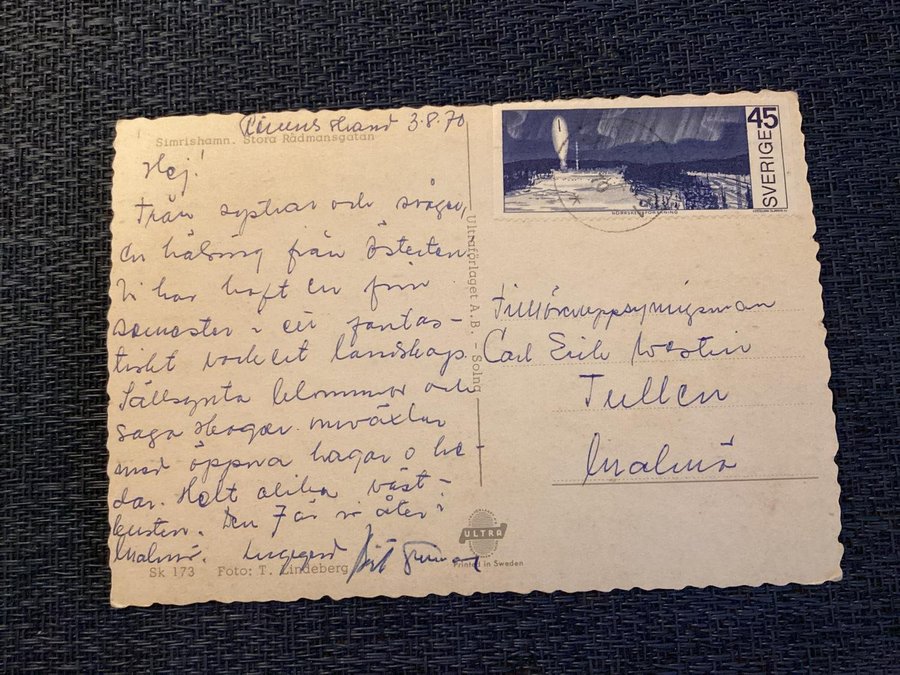 3.8.70
Simrishamn. Stora Rådmansgatan
Hej!
Från systrar och svåger,
en hälsning från Österlen.
Vi har haft en fin
semester i ett fantas-
tiskt vackert landskap.
Sällsynta blommor och
saga skogar omväxlar
med öppna hagar o he-
dar. Helt olika väst-
kusten. Den 7 är vi åter i
Malmö.
Sk 173 Foto: T. Lindeberg
Ultraförlaget A.B. - Solna
ULTRA
Printed in Sweden
SVERIGE 45
NORRSKENSFORSKNING
Carl Erik Westin
Tullen
Malmö